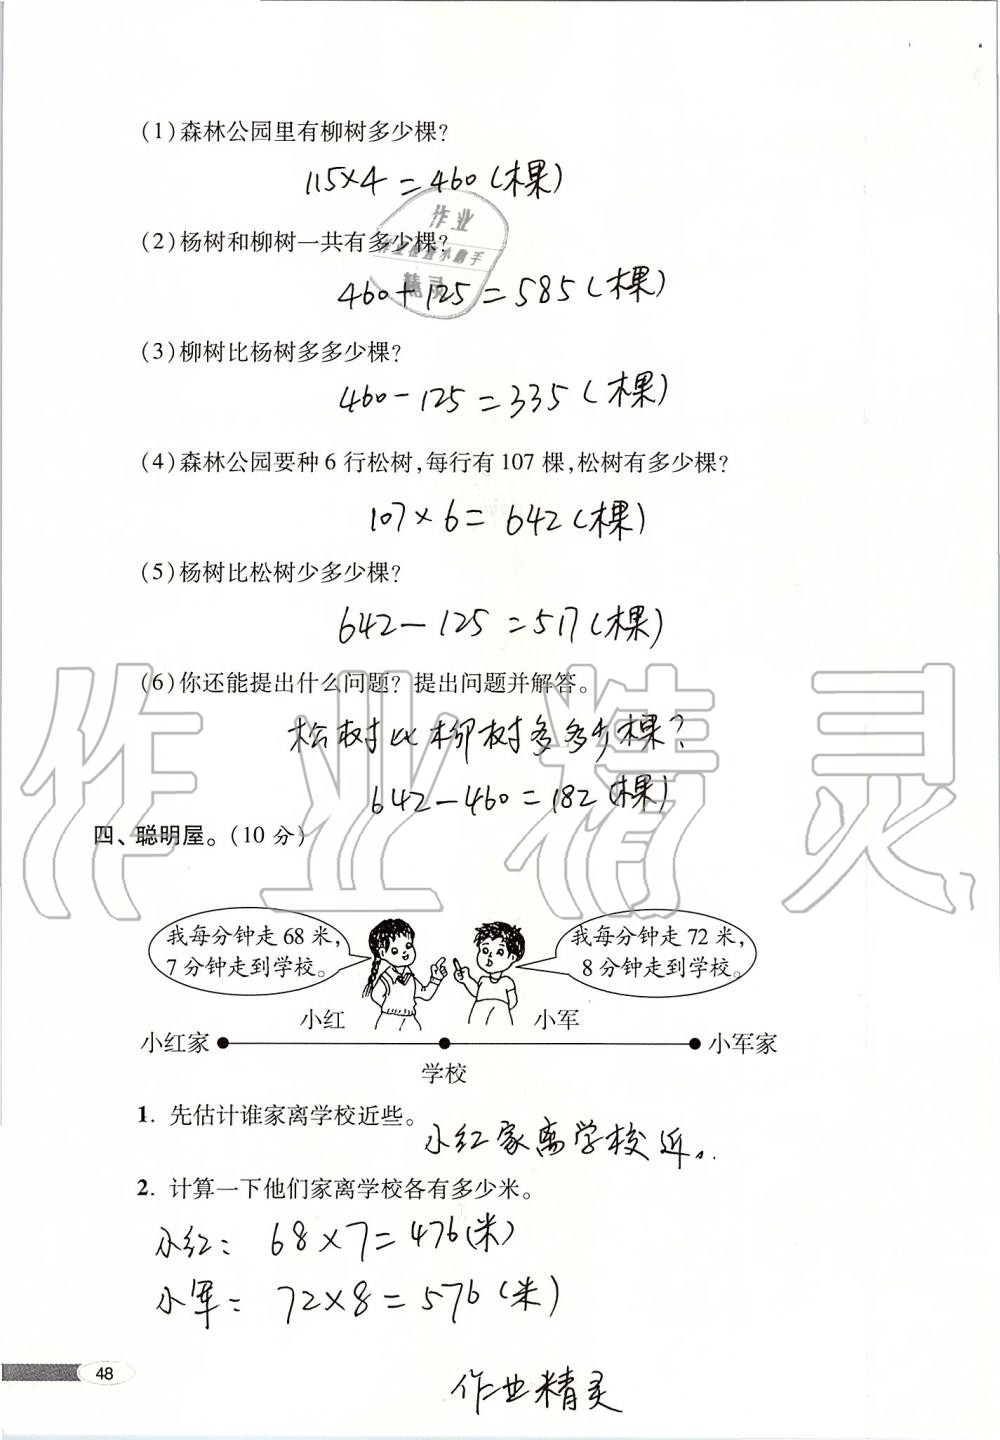 (1)森林公园里有柳树多少棵?
115×4=460(棵)
作业
(2)杨树和柳树一共有多少棵?
作业检查小帮手
精灵
460+125=585(棵)
(3)柳树比杨树多多少棵?
460-125=335(棵)
(4)森林公园要种6行松树,每行有107棵,松树有多少棵?
107×6=642(棵)
(5)杨树比松树少多少棵?
642-125=517(棵)
(6)你还能提出什么问题?提出问题并解答。
松树比柳树多多少棵?
642-460=182(棵)
作业精灵
四、聪明屋。(10分)
我每分钟走68米,
7分钟走到学校。
我每分钟走72米,
8分钟走到学校。
小红
小军
小红家
小军家
学校
1. 先估计谁家离学校近些。
小红家离学校近。
2. 计算一下他们家离学校各有多少米。
小红: 68×7=476(米)
小军: 72×8=576(米)
48
作业精灵